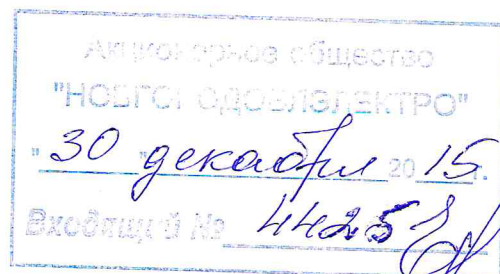 Акционерное общество
"НОВГОРОДОБЛЭЛЕКТРО"
"30" декабря 2015 г.
Входящий № 4425